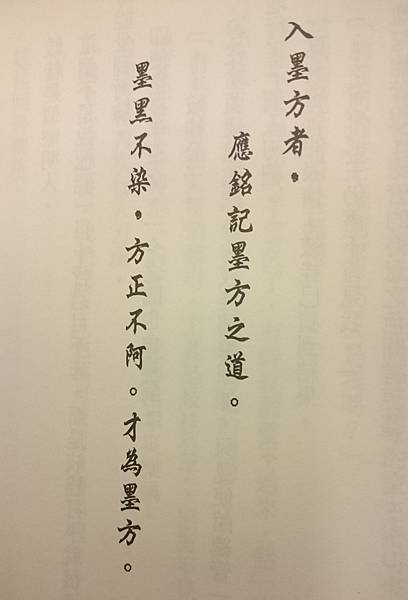 入墨方者，
應銘記墨方之道。
墨黑不染，方正不阿。才為墨方。